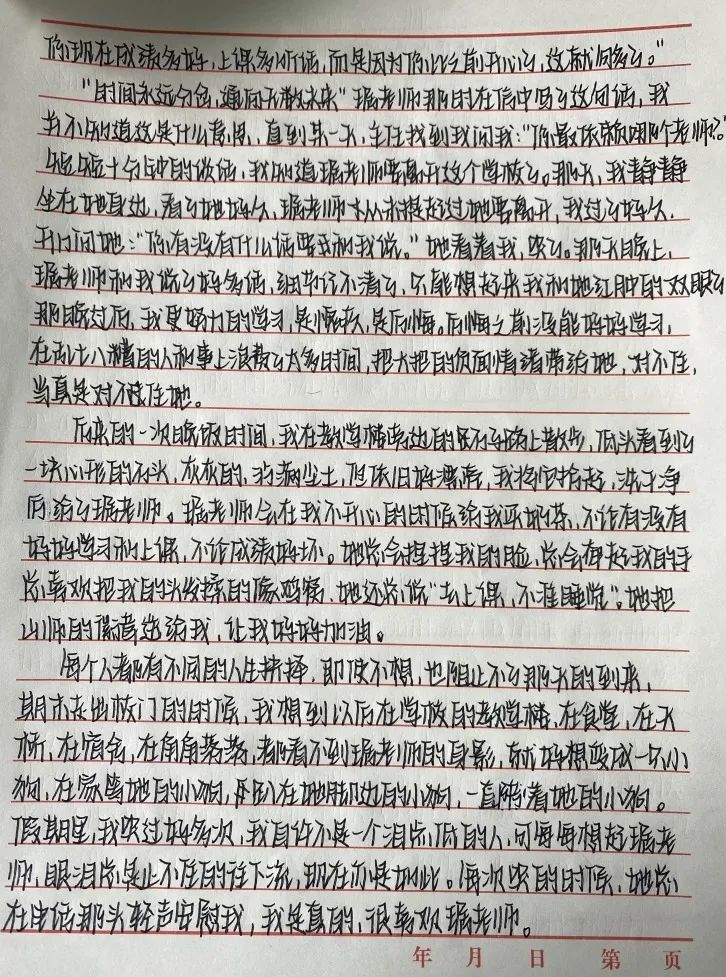 你现在成绩多好，上课多听话，而是因为你比之前开心了，这就何多了。”
“时间永远分岔，通向无数未来”琚老师那时在信中写了这句话，我
当不知道这是什么意思，直到某一天，主任找到我问我：“你最依赖哪个老师？”
短短十分钟的谈话，我知道琚老师要离开这个学校了。那天，我静静
坐在她身边，看了她好久，琚老师从未提起过她要离开，我过了好久，
开口问她：“你有没有什么话要和我说。”她看着我，哭了。那天晚上，
琚老师和我说了好多话，细节记不清了，只能想起来我和她红肿的双眼了
那晚过后，我更努力的学习，是愧疚，是后悔。后悔之前没能好好学习，
在乱七八糟的人和事上浪费了太多时间，把大把的负面情绪带给她，对不住，
当真是对不住她。
后来的一次晚饭时间，我在教学楼旁边的石子路上散步，低头看到了
一块心形的石头，灰灰的，沾满尘土，但依旧好漂亮，我将它拾起，洗干净
后给了琚老师。琚老师会在我不开心的时候给我买奶茶，不论有没有
好好学习和上课，不论成绩好坏。她总会捏捏我的脸，总会牵起我的手
总喜欢把我的头发揉的像鸡窝，她还总说“去上课，不准睡觉”。她把
山师的徽章送给我，让我好好加油。
每个人都有不同的人生抉择，即使不想，也阻止不了那天的到来，
期末走出校门的时候，我想到以后在学校的教学楼，在食堂，在天
桥，在宿舍，在角角落落，都看不到琚老师的身影，就好想变成一只小
狗，在家等她的小狗，趴在她脚边的小狗，一直跟着她的小狗。
假期里，我哭过好多次，我自许不是一个泪点低的人，可每每想起琚老
师，眼泪总是止不住的往下流，现在亦是如此。每次哭的时候，她总
在电话那头轻声安慰我，我是真的，很喜欢琚老师。
年 月 日 第 页